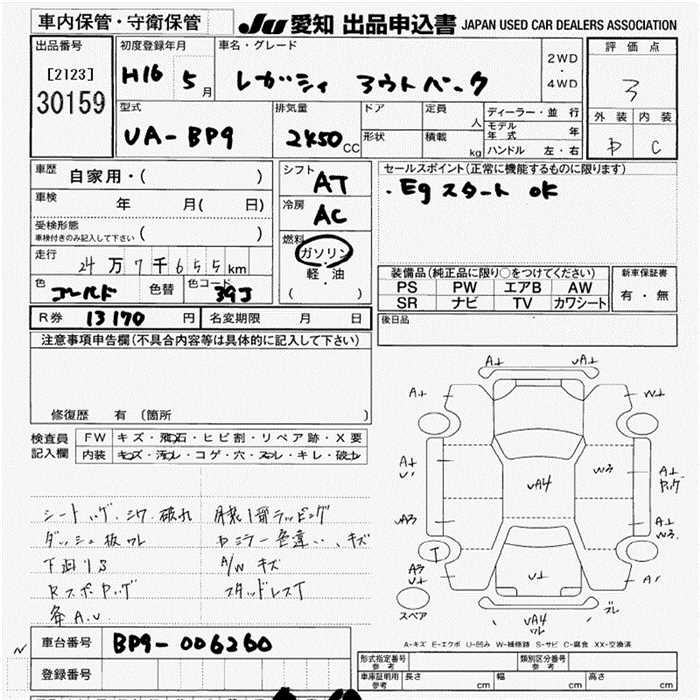 車内保管・守衛保管 JU 愛知 出品申込書 JAPAN USED CAR DEALERS ASSOCIATION
出品番号 初度登録年月 車名・グレード 2WD ・ 4WD 評価点
[2123] H16 5月 レガシィ アウトバック 3
30159
型式 排気量 ドア 定員 人 ディーラー・並行 外装 内装
UA-BP9 2450 CC 形状 積載 kg モデル年式 年 C
ハンドル 左・右
車歴 自家用・( ) シフト AT セールスポイント(正常に機能するものに限ります)
車検 年 月( 日) 冷房 AC ・Egスタート OK
受検形態 ( )
車検付きのみ記入して下さい
燃料 ガソリン ・ 軽油 ( )
走行 24万7千655km
色 ゴールド 色替 色コード 39J
装備品(純正品に限り○をつけてください) 新車保証書
PS PW エアB AW 有・無
SR ナビ TV カワシート
R券 13170円 名変期限 月 日 後日品
注意事項申告欄(不具合内容等は具体的に記入して下さい)
修復歴 有 (箇所
検査員記入欄 FW キズ・飛石・ヒビ割・リペア跡・X要
内装 キズ・汚れ・コゲ・穴・スレ・キレ・破れ
シートハゲ・シワ・破れ
ダッシュ板ワレ
下回りS
Rスポヤケ
各A.U
ラッピング
ドミラー色違い、キズ
A/Wキズ
スタッドレスT
A+ UA+
A+ W+
A+ U1 UA4 W3 A+ ヤケ
UA3 A+ W3
T
A3 U+ U+ A1
スペア UA4 ワレ ブレ
A-キズ E-エクボ U-凹み W-補修跡 S-サビ C-腐食 XX-交換済
車台番号 BP9-006260
登録番号
形式指定番号 参考 類別区分番号 参考
車庫証明用 参考 長さ cm 幅 cm 高さ cm